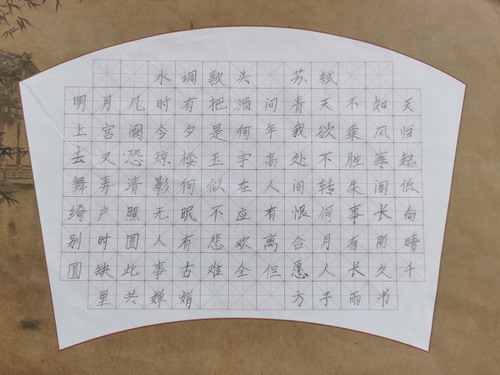 水调歌头 苏轼
明月几时有把酒问青天不知天
上宫阙今夕是何年我欲乘风归
去又恐琼楼玉宇高处不胜寒起
舞弄清影何似在人间转朱阁低
绮户照无眠不应有恨何事长向
别时圆人有悲欢离合月有阴晴
圆缺此事古难全但愿人长久千
里共婵娟 方子雨书